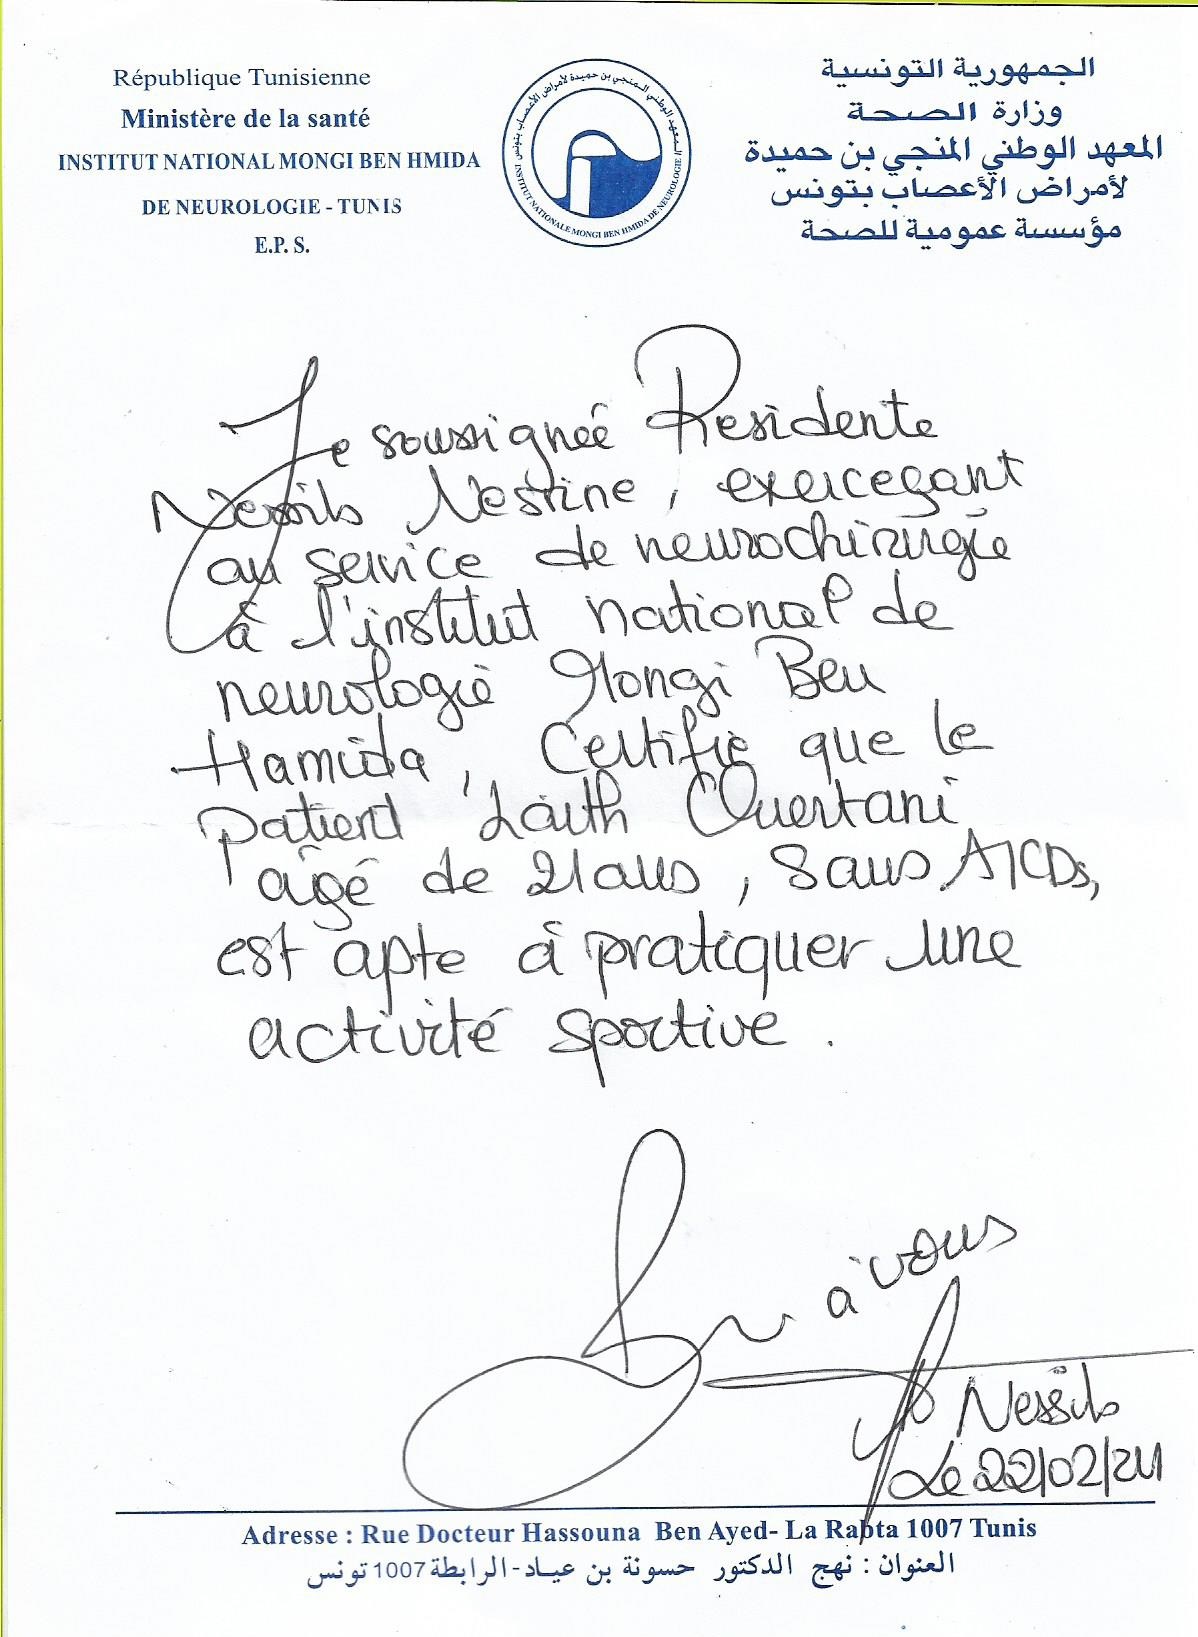 République Tunisienne
Ministère de la santé
INSTITUT NATIONAL MONGI BEN HMIDA
DE NEUROLOGIE - TUNIS
E.P. S.
المعهد الوطني المنجي بن حميدة لأمراض الأعصاب بتونس
INSTITUT NATIONALE MONGI BEN HMIDA DE NEUROLOGIE
الجمهورية التونسية
وزارة الصحة
المعهد الوطني المنجي بن حميدة
لأمراض الأعصاب بتونس
مؤسسة عمومية للصحة
Je soussignée Residente
Nessib Nesrine, exerceçant
au service de neurochirurgie
à l'institut national de
neurologie Mongi Ben
Hamida, Certifie que le
patient Laith Ouertani
âgé de 21 ans, Sans ATCDs,
est apte à pratiquer une
activité sportive.
à vous
Nessib
Le 22/02/24
Adresse : Rue Docteur Hassouna Ben Ayed- La Rabta 1007 Tunis
العنوان : نهج الدكتور حسونة بن عياد-الرابطة 1007 تونس